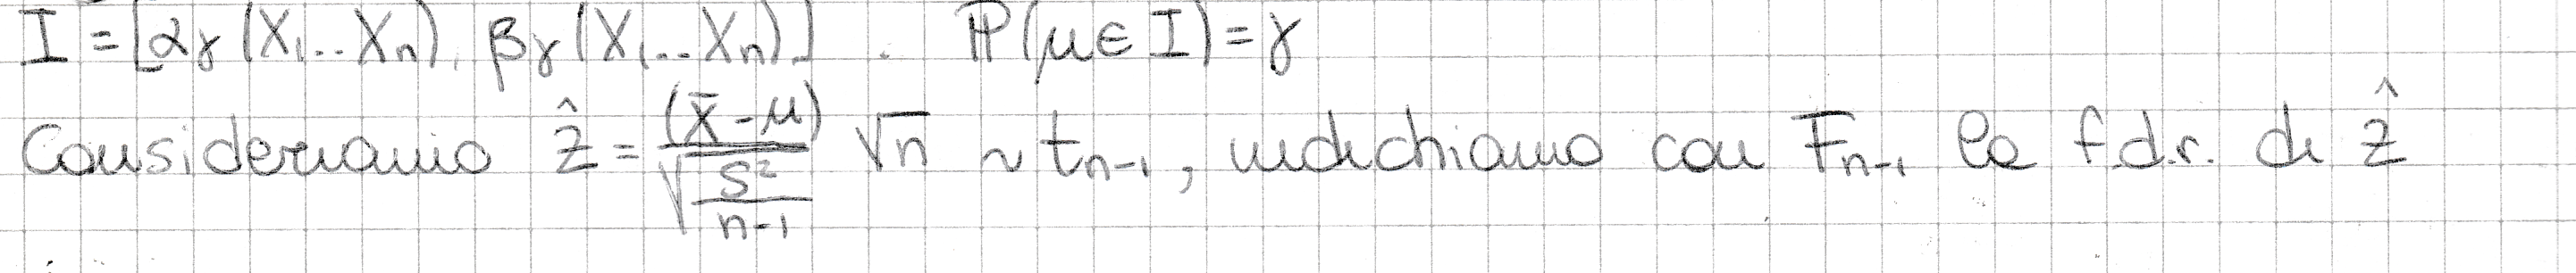 I = [αγ (X₁...Xn), βγ (X₁...Xn)]. ℙ(μ ∈ I) = γ
Consideriamo ẑ = (x̄ - μ) / √(S² / (n-1)) √n ~ tn-1, indichiamo con Fn-1 la f.d.r. di ẑ